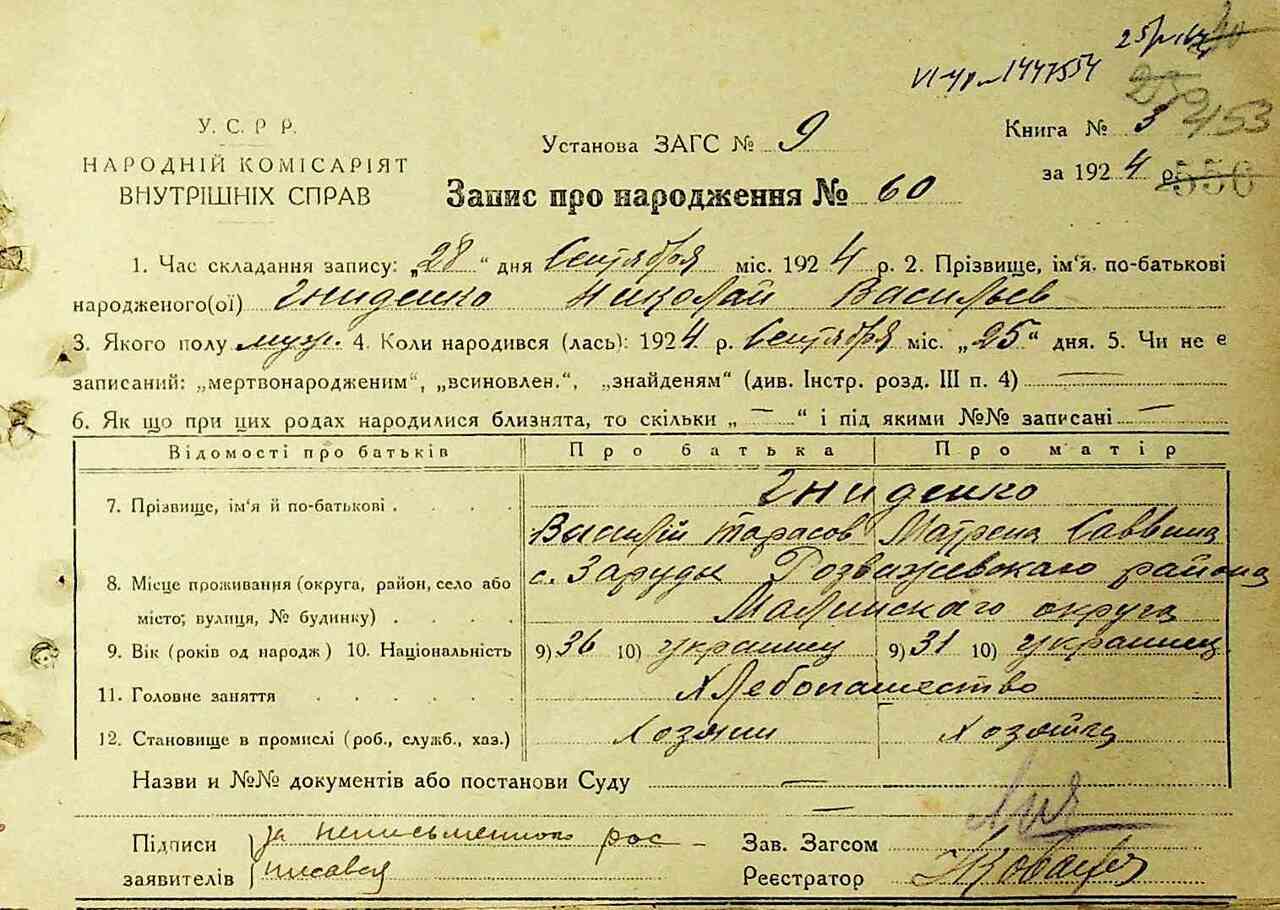 У. С. Р. Р.
НАРОДНІЙ КОМІСАРІЯТ
ВНУТРІШНІХ СПРАВ
Установа ЗАГС № 9
Запис про народження № 60
Книга № 3
за 1924 р.
550
1. Час складання запису: „28“ дня Сентября міс. 1924 р. 2. Прізвище, ім'я, по-батькові
народженого(ої) Гниденко Николай Васильев
3. Якого полу муж. 4. Коли народився (лась): 1924 р. Сентября міс. „25“ дня. 5. Чи не є
записаний: „мертвонародженим“, „всиновлен.“, „знайденям“ (див. Інстр. розд. III п. 4) —
6. Як що при цих родах народилися близнята, то скільки „—“ і під якими №№ записані —
Відомості про батьків Про батька Про матір
7. Прізвище, ім'я й по-батькові . . . . Гниденко
Василій Тарасов Матрена Саввина
8. Місце проживання (округа, район, село або с. Заруды Розважевскаго района
місто; вулиця, № будинку) . . . . Малинскаго округа
9. Вік (років од народж) 10. Національність 9) 36 10) украинец 9) 31 10) украинец
11. Головне заняття . . . . . Хлебопашество
12. Становище в промислі (роб., служб., хаз.) Хозяин Хозяйка
Назви и №№ документів або постанови Суду —
Підписи за неписьменного рос-
заявителів писався
Зав. Загсом
Реєстратор